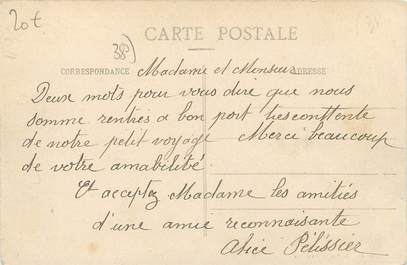 20€
38)
38
CARTE POSTALE
CORRESPONDANCE
ADRESSE
Madame et Monsieur
Deux mots pour vous dire que nous
somme rentrés a bon port tres conttente
de notre petit voyage Merci beaucoup
de votre amabilité
Et acceptez Madame les amitiés
d'une amie reconnaisante
Alice Pélissier